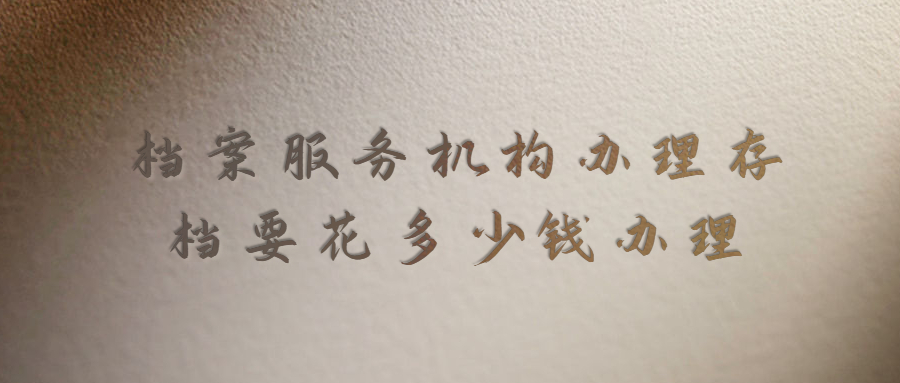 档案服务机构办理存
档要花多少钱办理